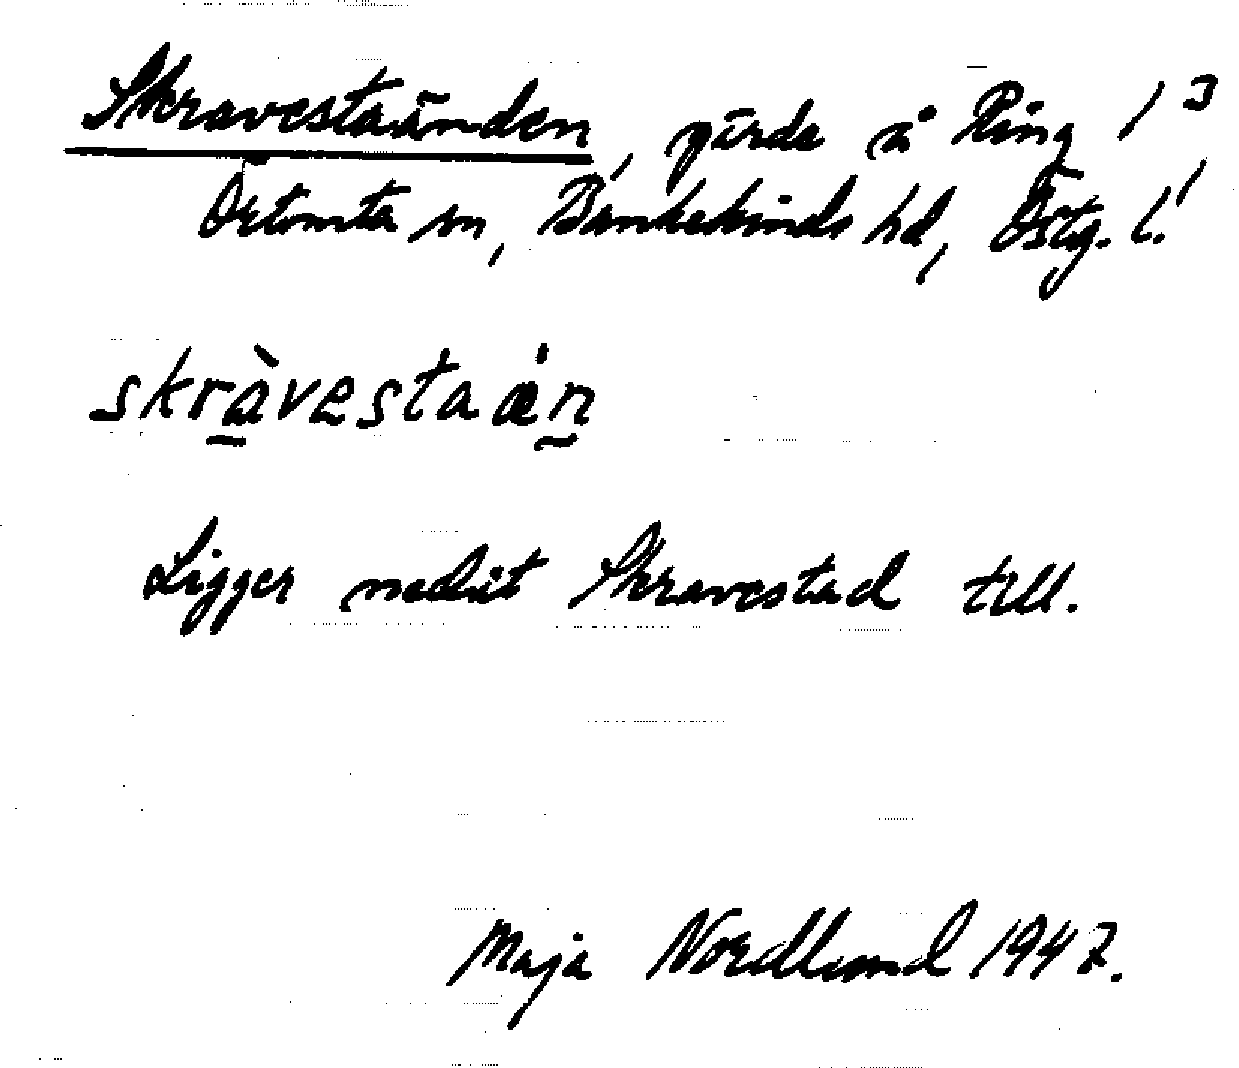 Skravestaänden, gärde å Ring 1³
Örtomta sn, Bankekinds hd, Östg. l.
skràvestaǽn
Ligger nedåt Skravestad till.
Maja Nordlund 1947.